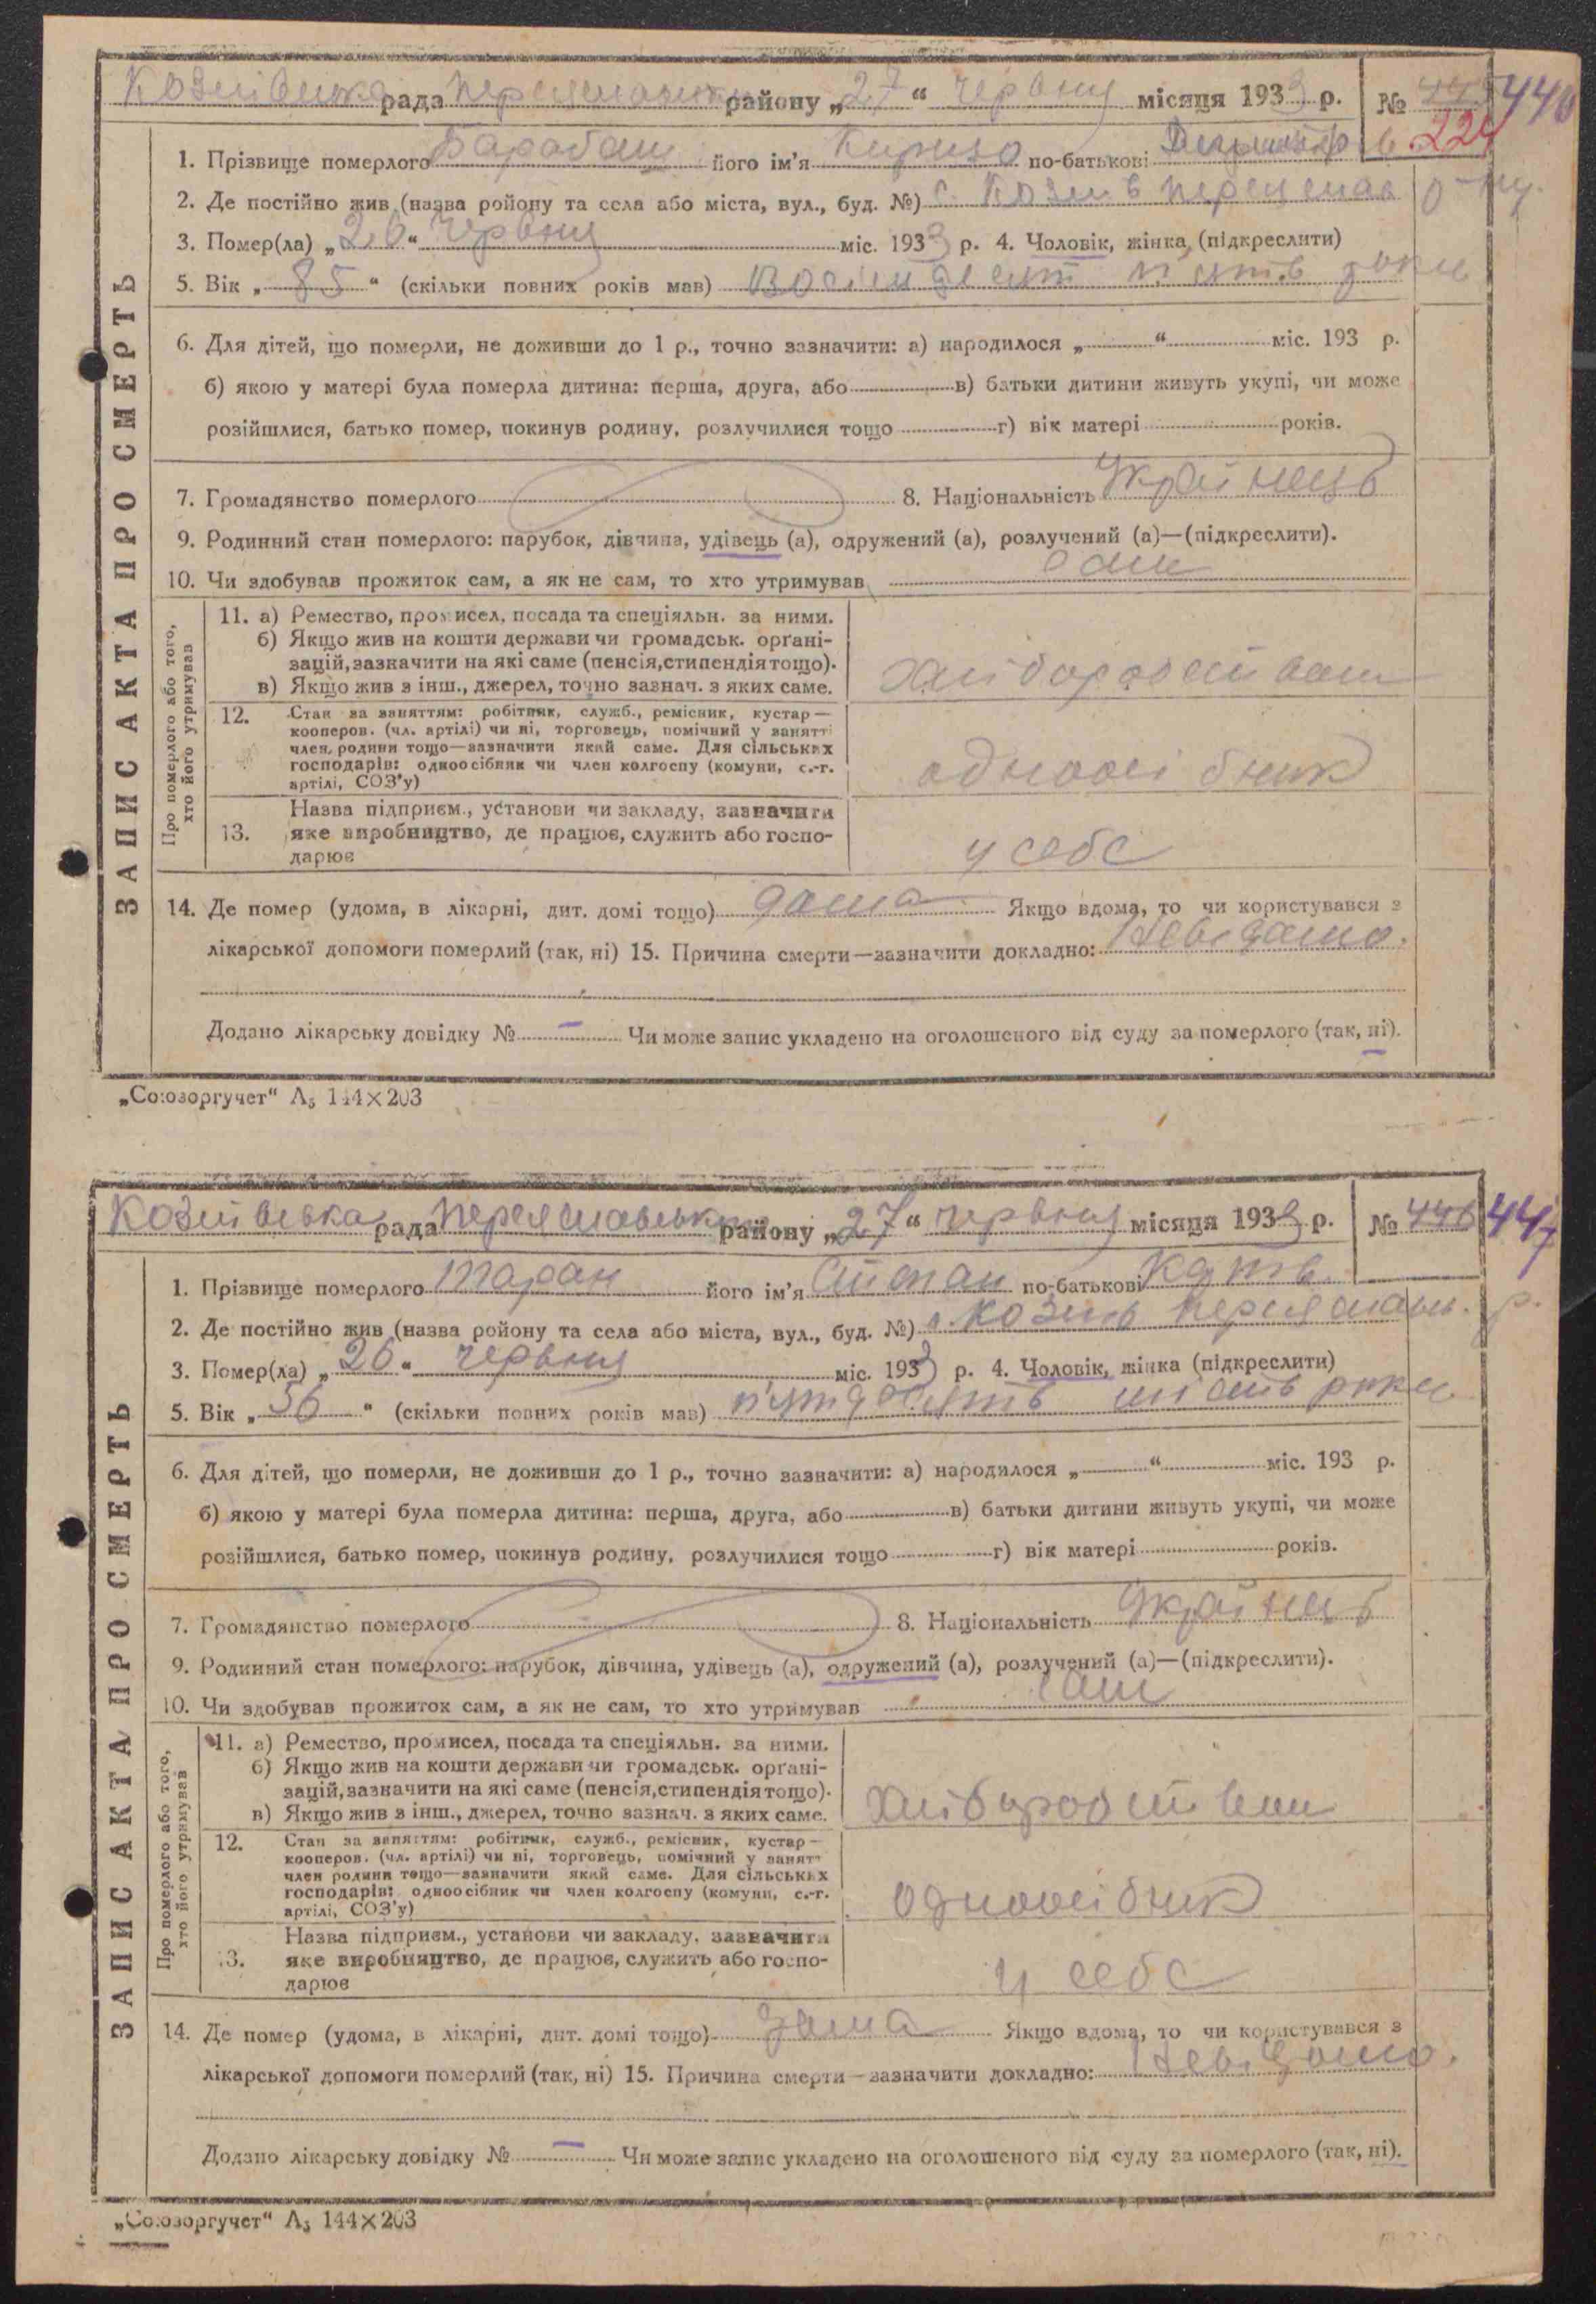 Козинська рада Переяславськ району „27“ червня місяця 1933 р. № 445 446
224
1. Прізвище померлого Барабаш його ім'я Кирило по-батькові
2. Де постійно жив (назва ройону та села або міста, вул., буд. №) с. Козин Переяслав р-ну.
3. Помер(ла) „26“ червня міс. 1933 р. 4. Чоловік, жінка, (підкреслити)
5. Вік „85“ (скільки повних років мав) Восімдесят п'ять роки
6. Для дітей, що померли, не доживши до 1 р., точно зазначити: а) народилося „ “ міс. 193 р.
б) якою у матері була померла дитина: перша, друга, або в) батьки дитини живуть укупі, чи може
розійшлися, батько помер, покинув родину, розлучилися тощо г) вік матері років.
7. Громадянство померлого 8. Національність Українець
9. Родинний стан померлого: парубок, дівчина, удівець (а), одружений (а), розлучений (а)—(підкреслити).
10. Чи здобував прожиток сам, а як не сам, то хто утримував сам
ЗАПИС АКТА ПРО СМЕРТЬ
Про померлого або того,
хто його утримував
11. а) Ремество, промисел, посада та спеціяльн. за ними.
б) Якщо жив на кошти держави чи громадськ. орґані-
зацій, зазначити на які саме (пенсія, стипендія тощо).
в) Якщо жив з інш., джерел, точно зазнач. з яких саме.
12. Стан за заняттям: робітник, служб., ремісник, кустар—
кооперов. (чл. артілі) чи ні, торговець, помічний у занятт
член родини тощо—зазначити який саме. Для сільських
господарів: одноосібник чи член колгоспу (комуни, с.-г.
артілі, СОЗ'у)
одноосібник
Назва підприєм., установи чи закладу, зазначити
13. яке виробництво, де працює, служить або госпо-
дарює
у себе
14. Де помер (удома, в лікарні, дит. домі тощо) дома Якщо вдома, то чи користувався з
лікарської допомоги померлий (так, ні) 15. Причина смерти—зазначити докладно: Невідомо.
Додано лікарську довідку № — Чи може запис укладено на оголошеного від суду за померлого (так, ні).
„Союзоргучет“ А₅ 144×203
Козинська рада Переяславськ району „27“ червня місяця 1933 р. № 446 447
1. Прізвище померлого Таран його ім'я Степан по-батькові
2. Де постійно жив (назва ройону та села або міста, вул., буд. №) с. Козин Переяславськ. р.
3. Помер(ла) „26“ червня міс. 1933 р. 4. Чоловік, жінка (підкреслити)
5. Вік „56“ (скільки повних років мав) п'ятдесять шість роки
6. Для дітей, що померли, не доживши до 1 р., точно зазначити: а) народилося „ “ міс. 193 р.
б) якою у матері була померла дитина: перша, друга, або в) батьки дитини живуть укупі, чи може
розійшлися, батько помер, покинув родину, розлучилися тощо г) вік матері років.
7. Громадянство померлого 8. Національність Українець
9. Родинний стан померлого: парубок, дівчина, удівець (а), одружений (а), розлучений (а)—(підкреслити).
10. Чи здобував прожиток сам, а як не сам, то хто утримував сам
ЗАПИС АКТА ПРО СМЕРТЬ
Про померлого або того,
хто його утримував
11. а) Ремество, промисел, посада та спеціяльн. за ними.
б) Якщо жив на кошти держави чи громадськ. орґані-
зацій, зазначити на які саме (пенсія, стипендія тощо).
в) Якщо жив з інш., джерел, точно зазнач. з яких саме.
12. Стан за заняттям: робітник, служб., ремісник, кустар—
кооперов. (чл. артілі) чи ні, торговець, помічний у занятт
член родини тощо—зазначити який саме. Для сільських
господарів: одноосібник чи член колгоспу (комуни, с.-г.
артілі, СОЗ'у)
одноосібник
Назва підприєм., установи чи закладу, зазначити
13. яке виробництво, де працює, служить або госпо-
дарює
у себе
14. Де помер (удома, в лікарні, дит. домі тощо) дома Якщо вдома, то чи користувався з
лікарської допомоги померлий (так, ні) 15. Причина смерти—зазначити докладно: Невідомо.
Додано лікарську довідку № — Чи може запис укладено на оголошеного від суду за померлого (так, ні).
„Союзоргучет“ А₅ 144×203